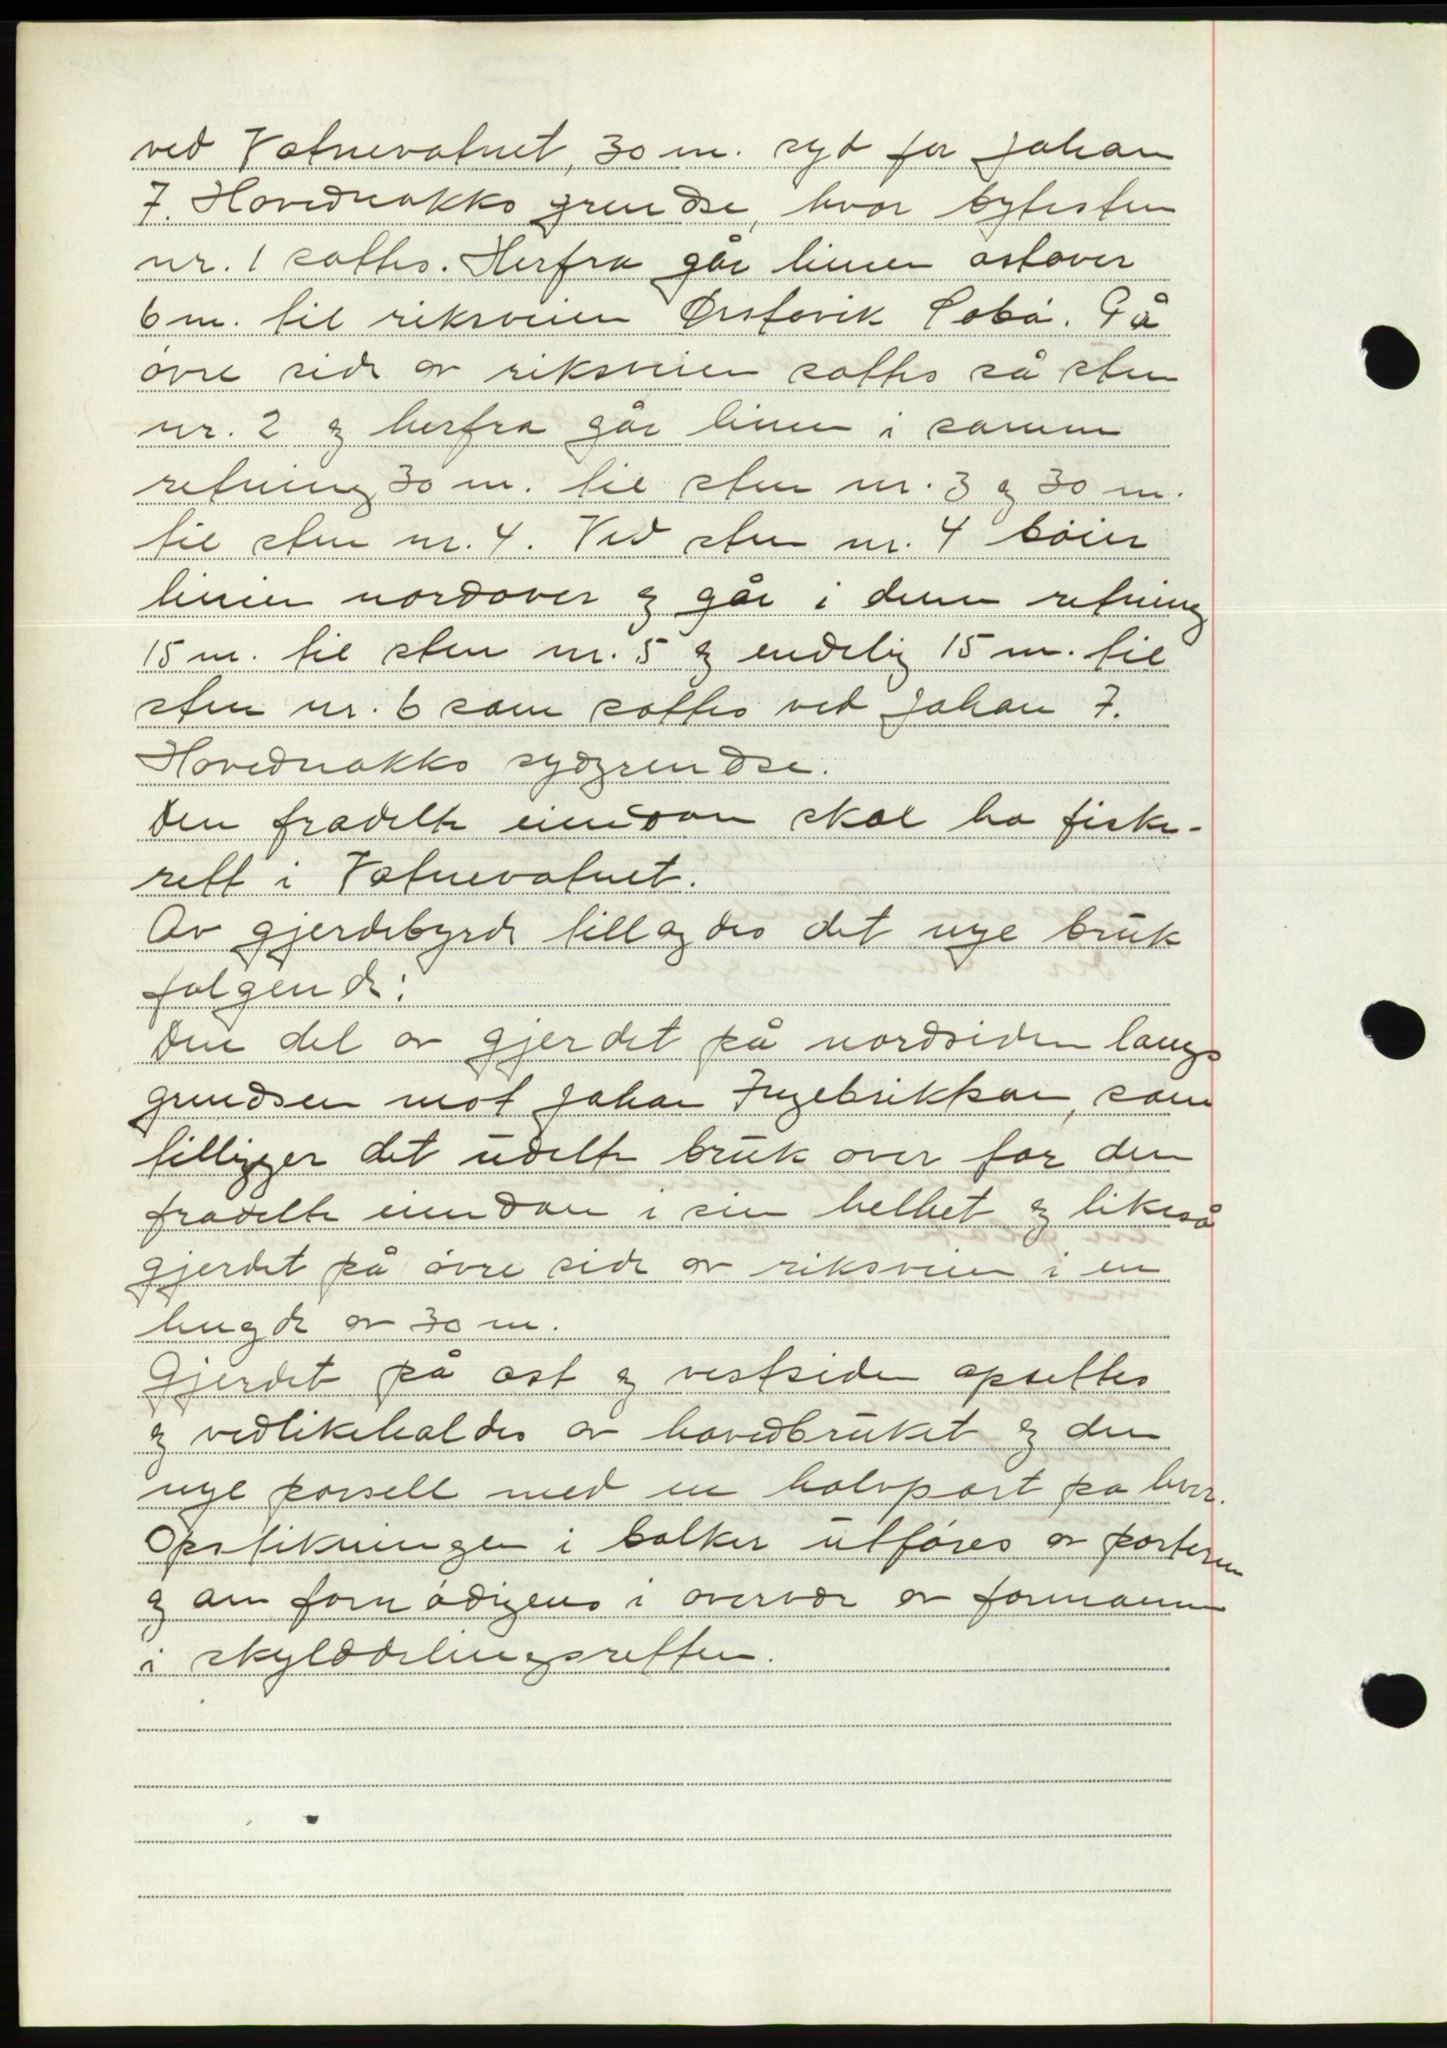 ved Vatnevatnet, 30 m. syd for Johan
I. Hovednakks grendse, hvor bytesten
nr. 1 sattes. Herfra går linien østover
6 m. til riksveien Ørstavik Lebø. På
øvre side av riksveien sattes så sten
nr. 2 og herfra går linien i samme
retning 30 m. til sten nr. 3 og 30 m.
til sten nr. 4. Ved sten nr. 4 bøier
linien nordover og går i denne retning
15 m. til sten nr. 5 og endelig 15 m. til
sten nr. 6 som sattes ved Johan I.
Hovednakks sydgrendse.
Den fradelte eiendom skal ha fiske-
rett i Vatnevatnet.
Av gjerdebyrde tillagdes det nye bruk
følgende:
Den del av gjerdet på nordsiden langs
grendsen mot Johan Ingebriktson, som
tilligger det udelte bruk over for den
fradelte eiendom i sin helhet og likeså
gjerdet på øvre side av riksveien i en
lengde av 30 m.
Gjerdet på øst og vestsiden opsettes
og vedlikeholdes av hovedbruket og den
nye parsell med en halvpart på hver.
Opstikningen i bolker utføres av parterne
og om fornødigens i overvær av formannen
i skylddelingsretten.